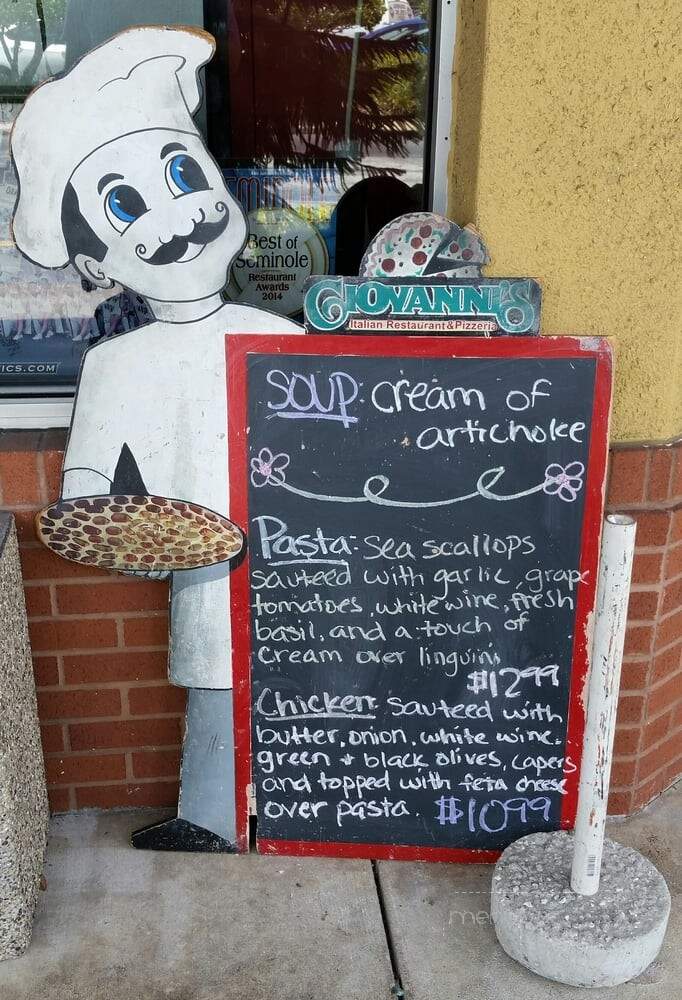 Best of
Seminole
Restaurant
Awards
2014
ICS.COM
GIOVANNI'S
Italian Restaurant & Pizzeria
SOUP: Cream of
artichoke
Pasta: Sea scallops
sauteed with garlic, grape
tomatoes, white wine, fresh
basil, and a touch of
cream over linguini
$12.99
Chicken: Sauteed with
butter, onion, white wine,
green + black olives, capers
and topped with feta cheese
over pasta. $10.99